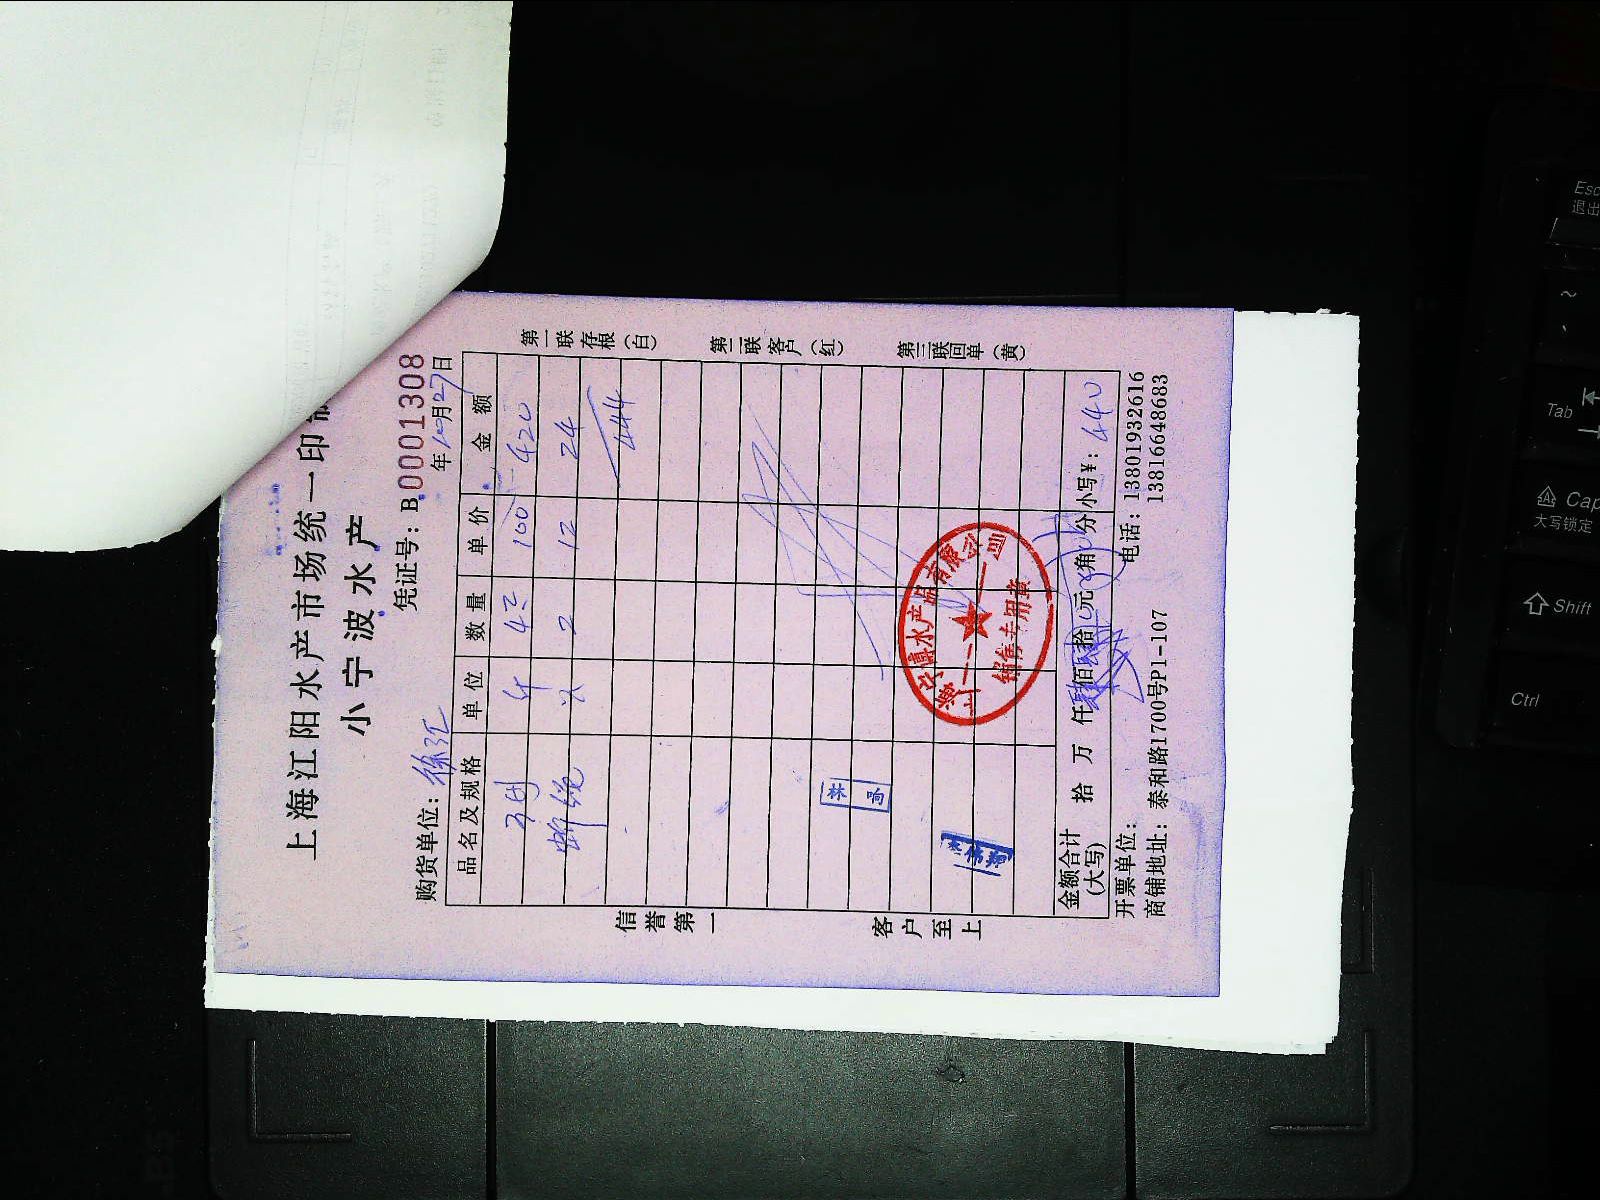 上海江阳水产市场统一印制
小宁波水产
凭证号：B 0001308
购货单位：徐汇
年10月27日
品名及规格 单位 数量 单价 金额
斤 100 420
2 12 24
444
第一联存根（白）
第二联客户（红）
第三联回单（黄）
信誉第一
客户至上
水产品有限公司
销售专用章
金额合计（大写） 拾 万 仟 肆佰肆拾 元 角 分 小写￥：440
开票单位：
电话：13801932616
13816648683
商铺地址：泰和路1700号P1-107
Esc
退出
~
Tab
Caps
大写锁定
Shift
Ctrl